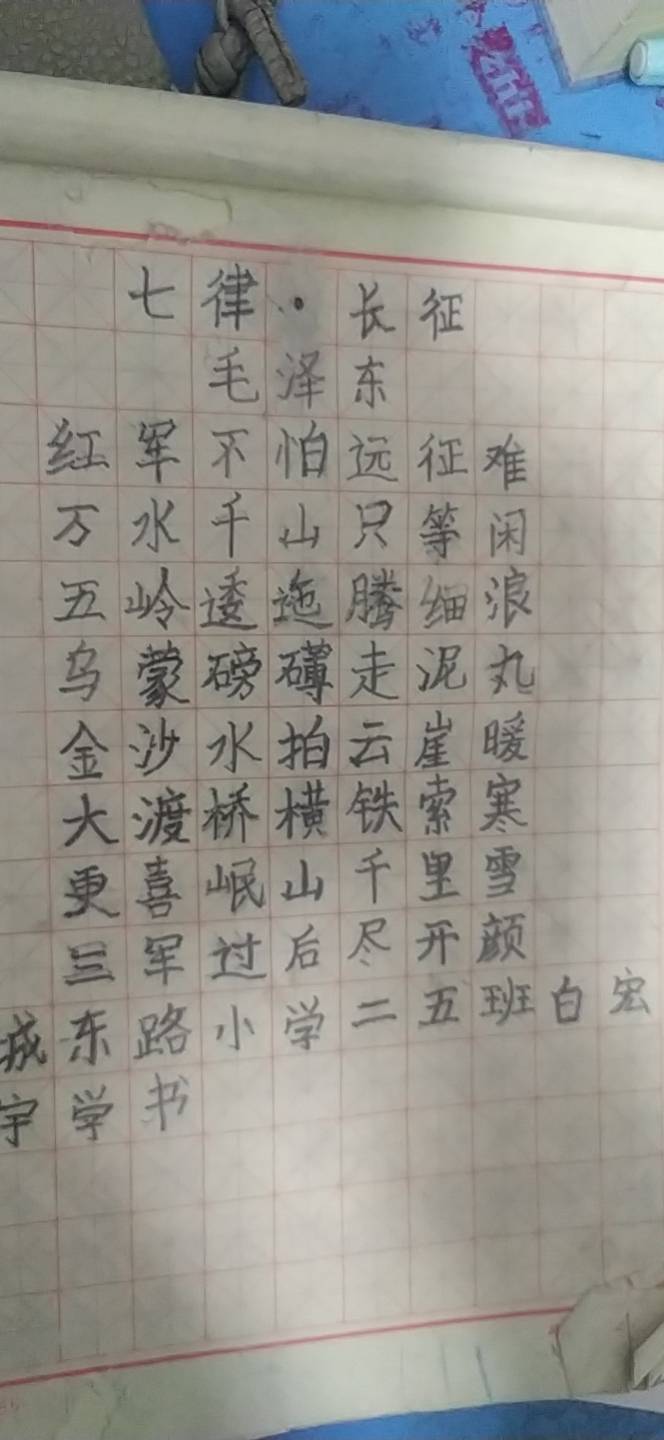 七律·长征
毛泽东
红军不怕远征难
万水千山只等闲
五岭逶迤腾细浪
乌蒙磅礴走泥丸
金沙水拍云崖暖
大渡桥横铁索寒
更喜岷山千里雪
三军过后尽开颜
城东路小学二五班白宏
宇学书